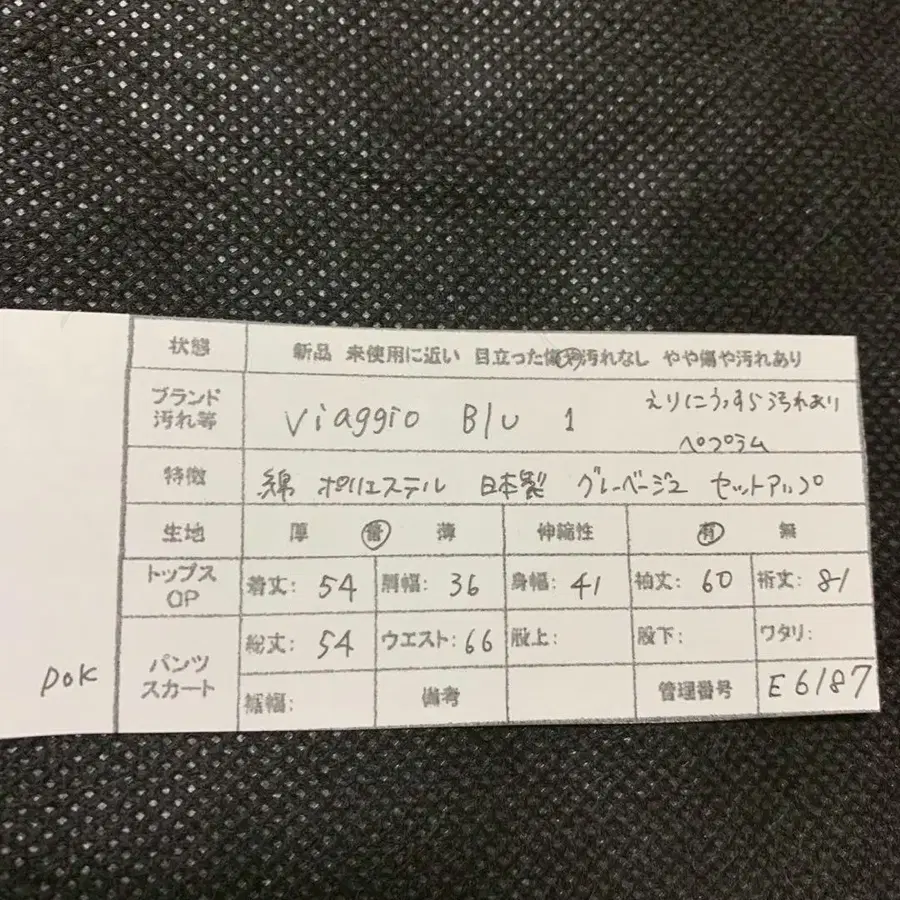 状態 新品 未使用に近い 目立った傷や汚れなし やや傷や汚れあり
ブランド 汚れ等 Viaggio Blu 1 えりにうっすら汚れあり ペプラム
特徴 綿 ポリエステル 日本製 グレーベージュ セットアップ
生地 厚 普 薄 伸縮性 有 無
トップス OP 着丈: 54 肩幅: 36 身幅: 41 袖丈: 60 裄丈: 81
パンツ スカート 総丈: 54 ウエスト: 66 股上: 股下: ワタリ:
裾幅: 備考 管理番号 E6187
DOK